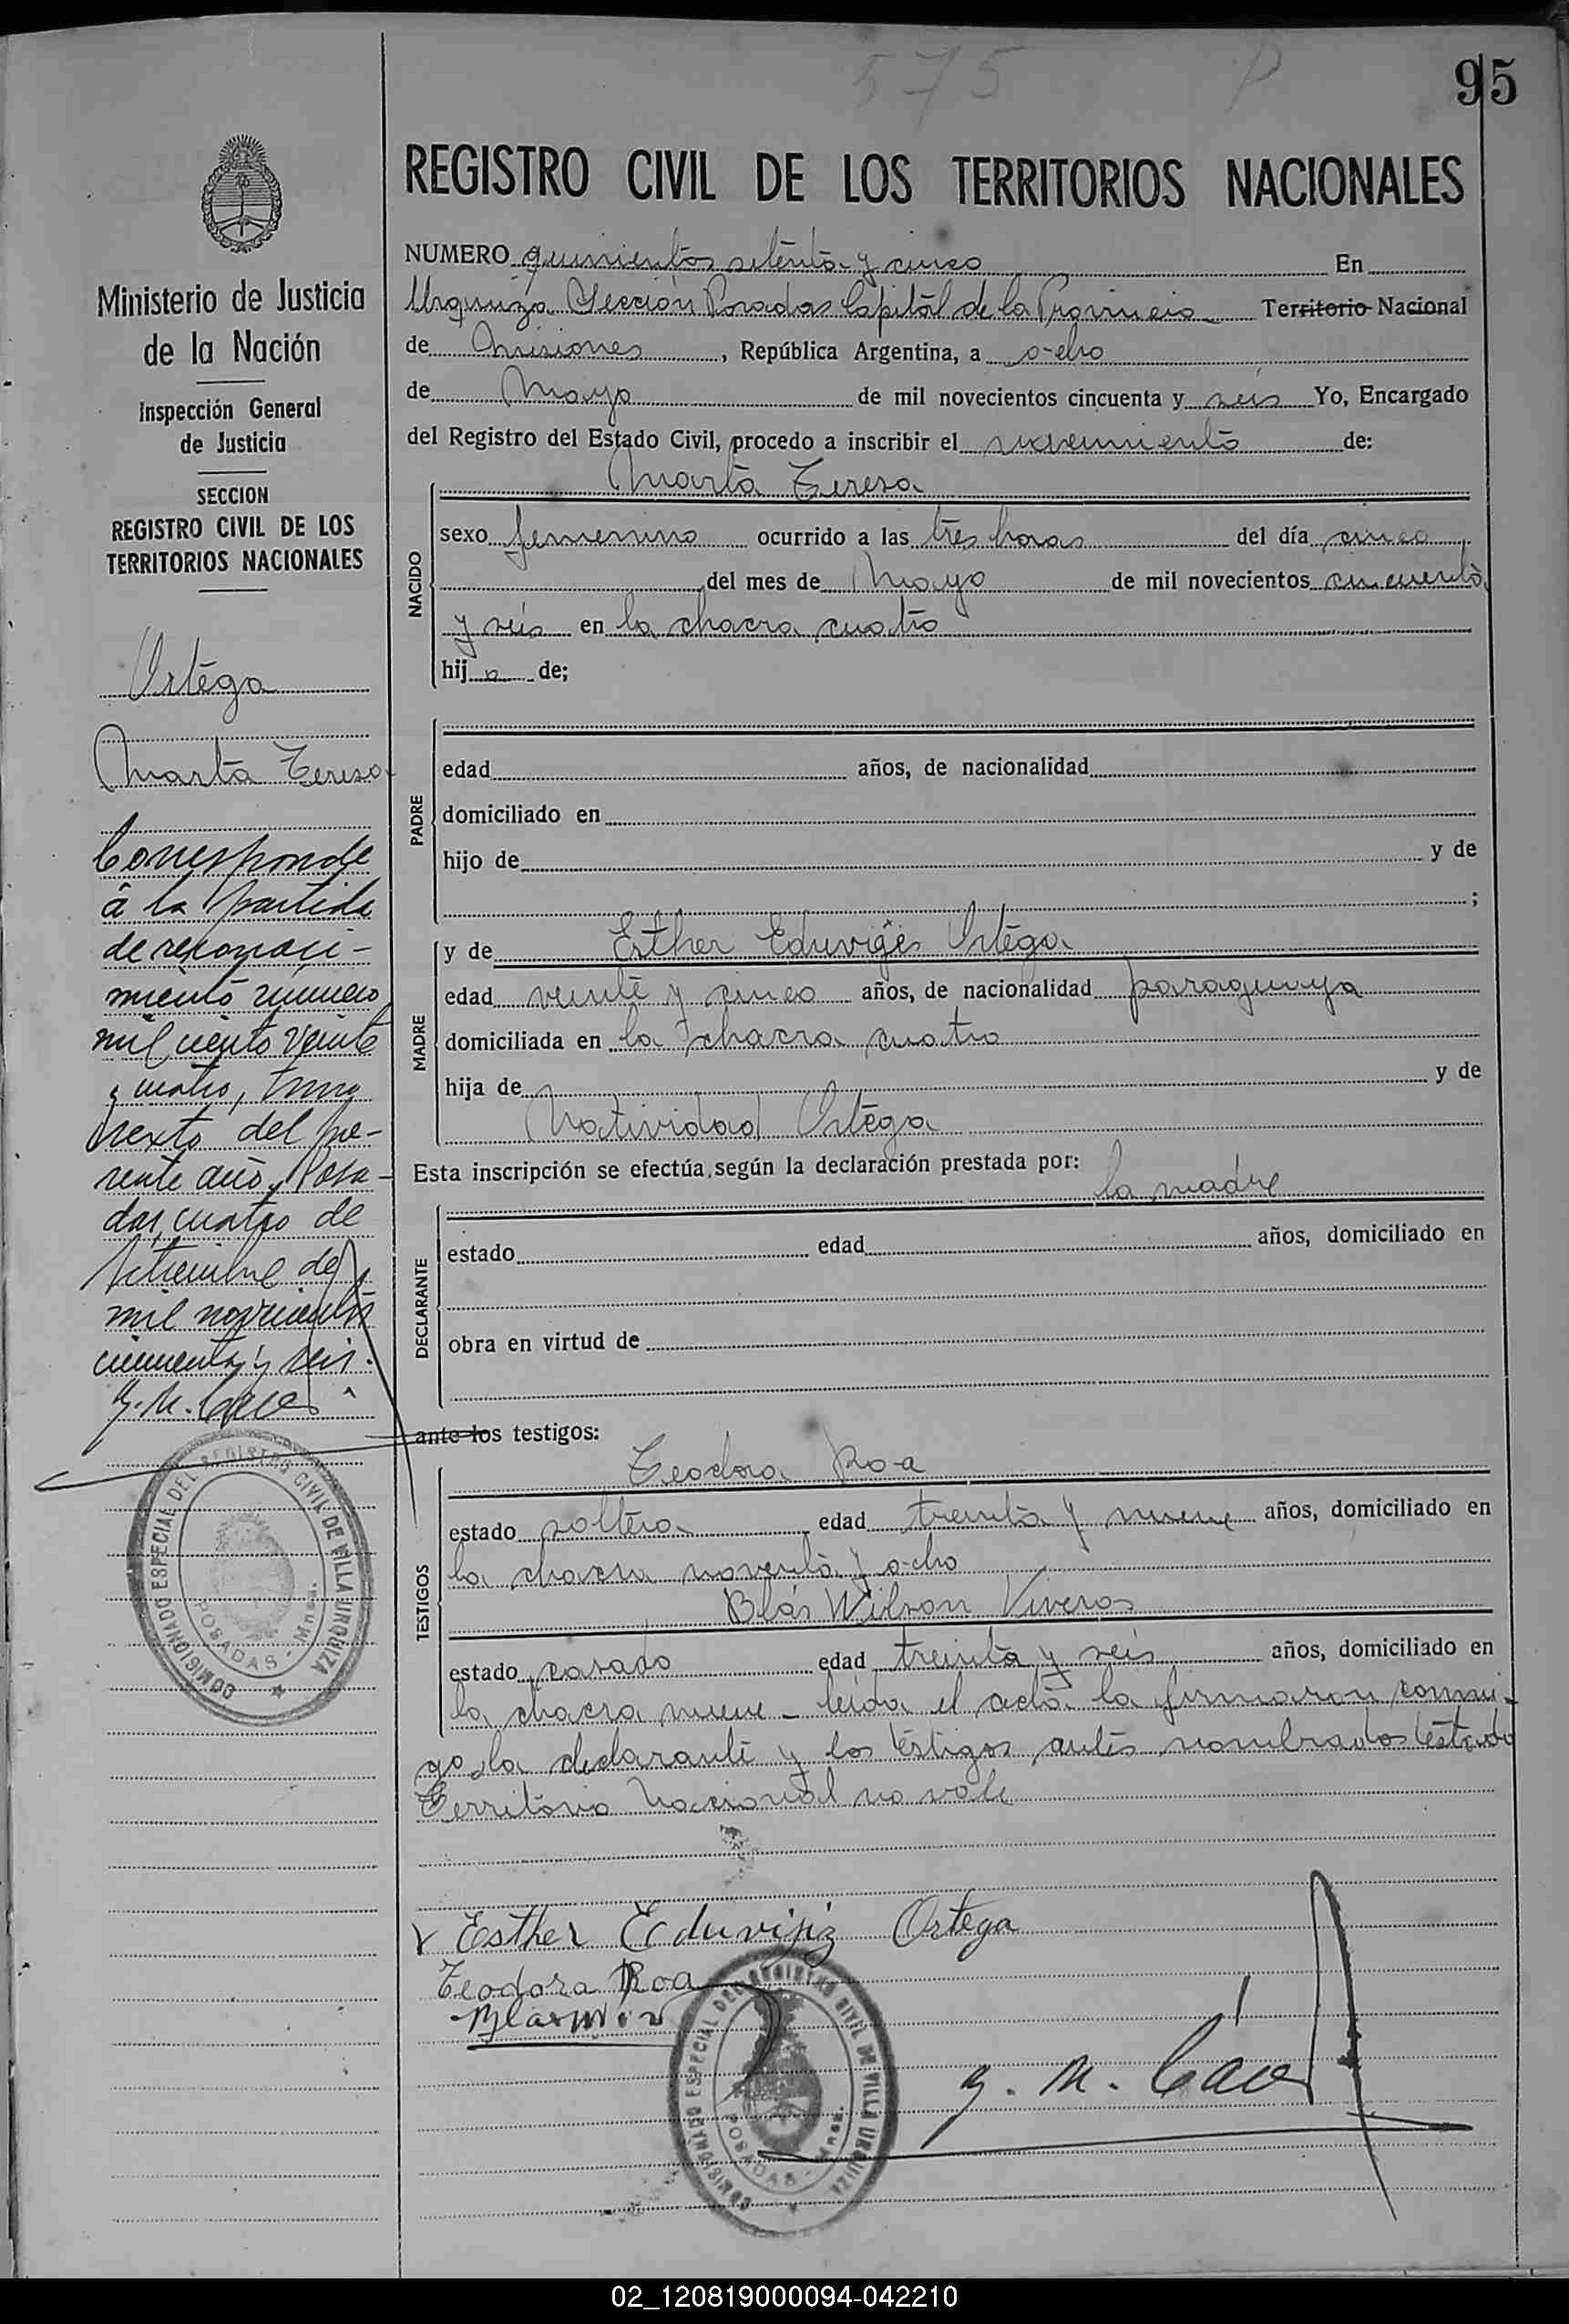 575 P
95
REGISTRO CIVIL DE LOS TERRITORIOS NACIONALES
Ministerio de Justicia
de la Nación
Inspección General
de Justicia
SECCION
REGISTRO CIVIL DE LOS
TERRITORIOS NACIONALES
Ortega
Marta Teresa
Corresponde
a la partida
de reconoci-
miento número
mil ciento veinte
y cuatro, tomo
sexto del pre-
sente año, Posa-
das, cuatro de
setiembre de
mil novecientos
cincuenta y seis.
NUMERO quinientos setenta y cinco En
Urquiza Sección Posadas Capital de la Provincia Territorio Nacional
de Misiones, República Argentina, a ocho
de Mayo de mil novecientos cincuenta y seis Yo, Encargado
del Registro del Estado Civil, procedo a inscribir el nacimiento de:
Marta Teresa
NACIDO
sexo femenino ocurrido a las tres horas del día cinco
del mes de Mayo de mil novecientos cincuenta
y seis en la chacra cuatro
hija de;
PADRE
edad años, de nacionalidad
domiciliado en
hijo de y de
;
MADRE
y de Esther Eduviges Ortega
edad veinte y cinco años, de nacionalidad paraguaya
domiciliada en la chacra cuatro
hija de y de
Natividad Ortega
Esta inscripción se efectúa según la declaración prestada por:
la madre
DECLARANTE
estado edad años, domiciliado en
obra en virtud de
ante los testigos:
TESTIGOS
Teodora Roa
estado soltera edad treinta y nueve años, domiciliado en
la chacra noventa y ocho
Blás Wilson Viveros
estado casado edad treinta y seis años, domiciliado en
la chacra nueve - leida el acta la firmaron conmi-
go la declarante y los testigos antes nombrados testado
Territorio Nacional no vale
Esther Eduvijiz Ortega
Teodora Roa
COMISIONADO ESPECIAL DEL REGISTRO CIVIL DE VILLA URQUIZA
POSADAS - Mnes.
COMISIONADO ESPECIAL DEL REGISTRO CIVIL DE VILLA URQUIZA
POSADAS - Mnes.
02_120819000094-042210